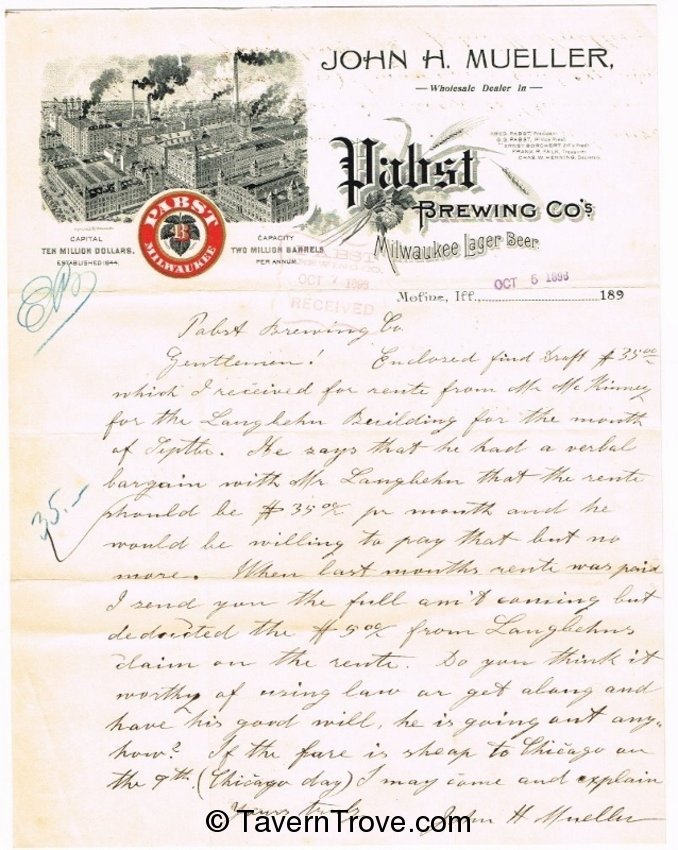 JOHN H. MUELLER,
— Wholesale Dealer In —
FRED. PABST, President
ERNST BORCHERT
FRANK R. FALK, Treasurer
CHAS. W. HENNING, Secretary
Pabst
BREWING CO'S
Milwaukee Lager Beer
CAPITAL
TEN MILLION DOLLARS.
ESTABLISHED 1844.
PABST
B
MILWAUKEE
CAPACITY
TWO MILLION BARRELS
PER ANNUM.
PABST
BREWING CO.
OCT 7 1893
RECEIVED
Moline, Ill., OCT 5 1893 189
Pabst Brewing Co
Gentlemen! Enclosed find Draft $35.00
which I received for rente from Mr McKinney
for the Langbehn Building for the month
of Septbr. He says that he had a verbal
bargain with Mr Langbehn that the rente
should be $35 00/ pr month and he
would be willing to pay that but no
more. When last months rente was paid
I send you the full am't coming but
deducted the $5 00/ from Langbehns
claim on the rente. Do you think it
worthy of using law or get along and
have his good will, he is going out any-
how? If the fare is sheap to Chicago on
the 9th. (Chicago day) I may come and explain
Yours truly
John H Mueller
35.-
© TavernTrove.com